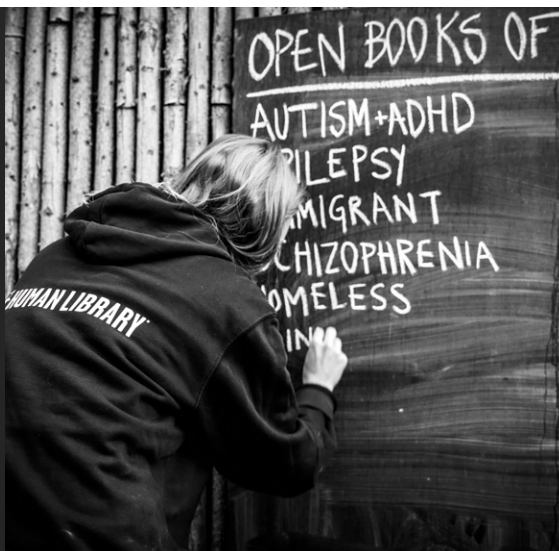 OPEN BOOKS OF
AUTISM+ADHD
PILEPSY
MIGRANT
CHIZOPHRENIA
OMELESS
HUMAN LIBRARY